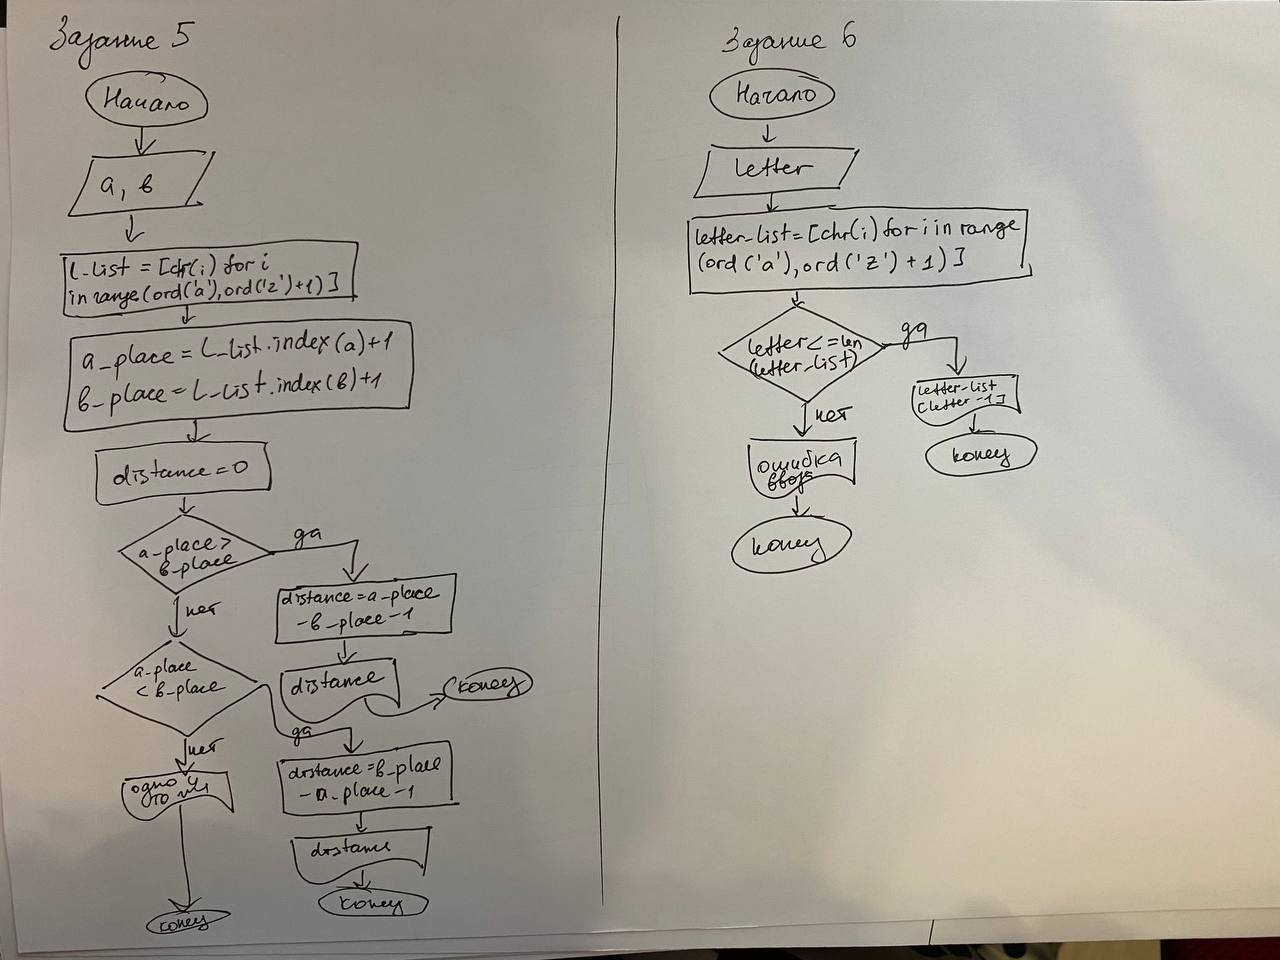 Задание 5
Начало
a, b
L_list = [chr(i) for i
in range(ord('a'),ord('z')+1)]
a_place = L_list.index(a)+1
b_place = L_list.index(b)+1
distance=0
a_place >
b_place
да
нет
distance=a_place
-b_place-1
distance
конец
a_place
< b_place
да
нет
distance=b_place
-a_place-1
distance
конец
одно и
то же
конец
Задание 6
Начало
letter
letter_list=[chr(i) for i in range
(ord('a'),ord('z')+1)]
letter<=len
(letter_list)
да
нет
letter_list
[letter-1]
конец
ошибка
ввода
конец